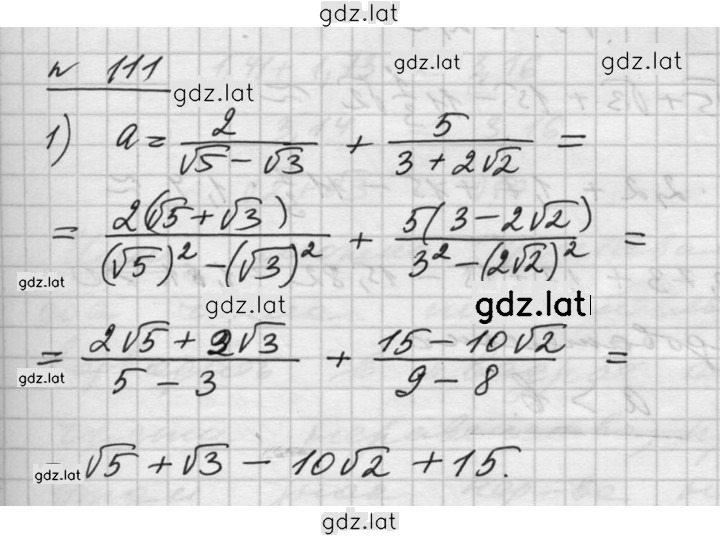 gdz.lat
№ 111
gdz.lat gdz.lat gdz.lat
1) a = 2/(√5 − √3) + 5/(3 + 2√2) =
= 2(√5 + √3)/((√5)² − (√3)²) + 5(3 − 2√2)/(3² − (2√2)²) =
gdz.lat gdz.lat gdz.lat
= (2√5 + 2√3)/(5 − 3) + (15 − 10√2)/(9 − 8) =
gdz.lat gdz.lat
= √5 + √3 − 10√2 + 15.
gdz.lat
gdz.lat